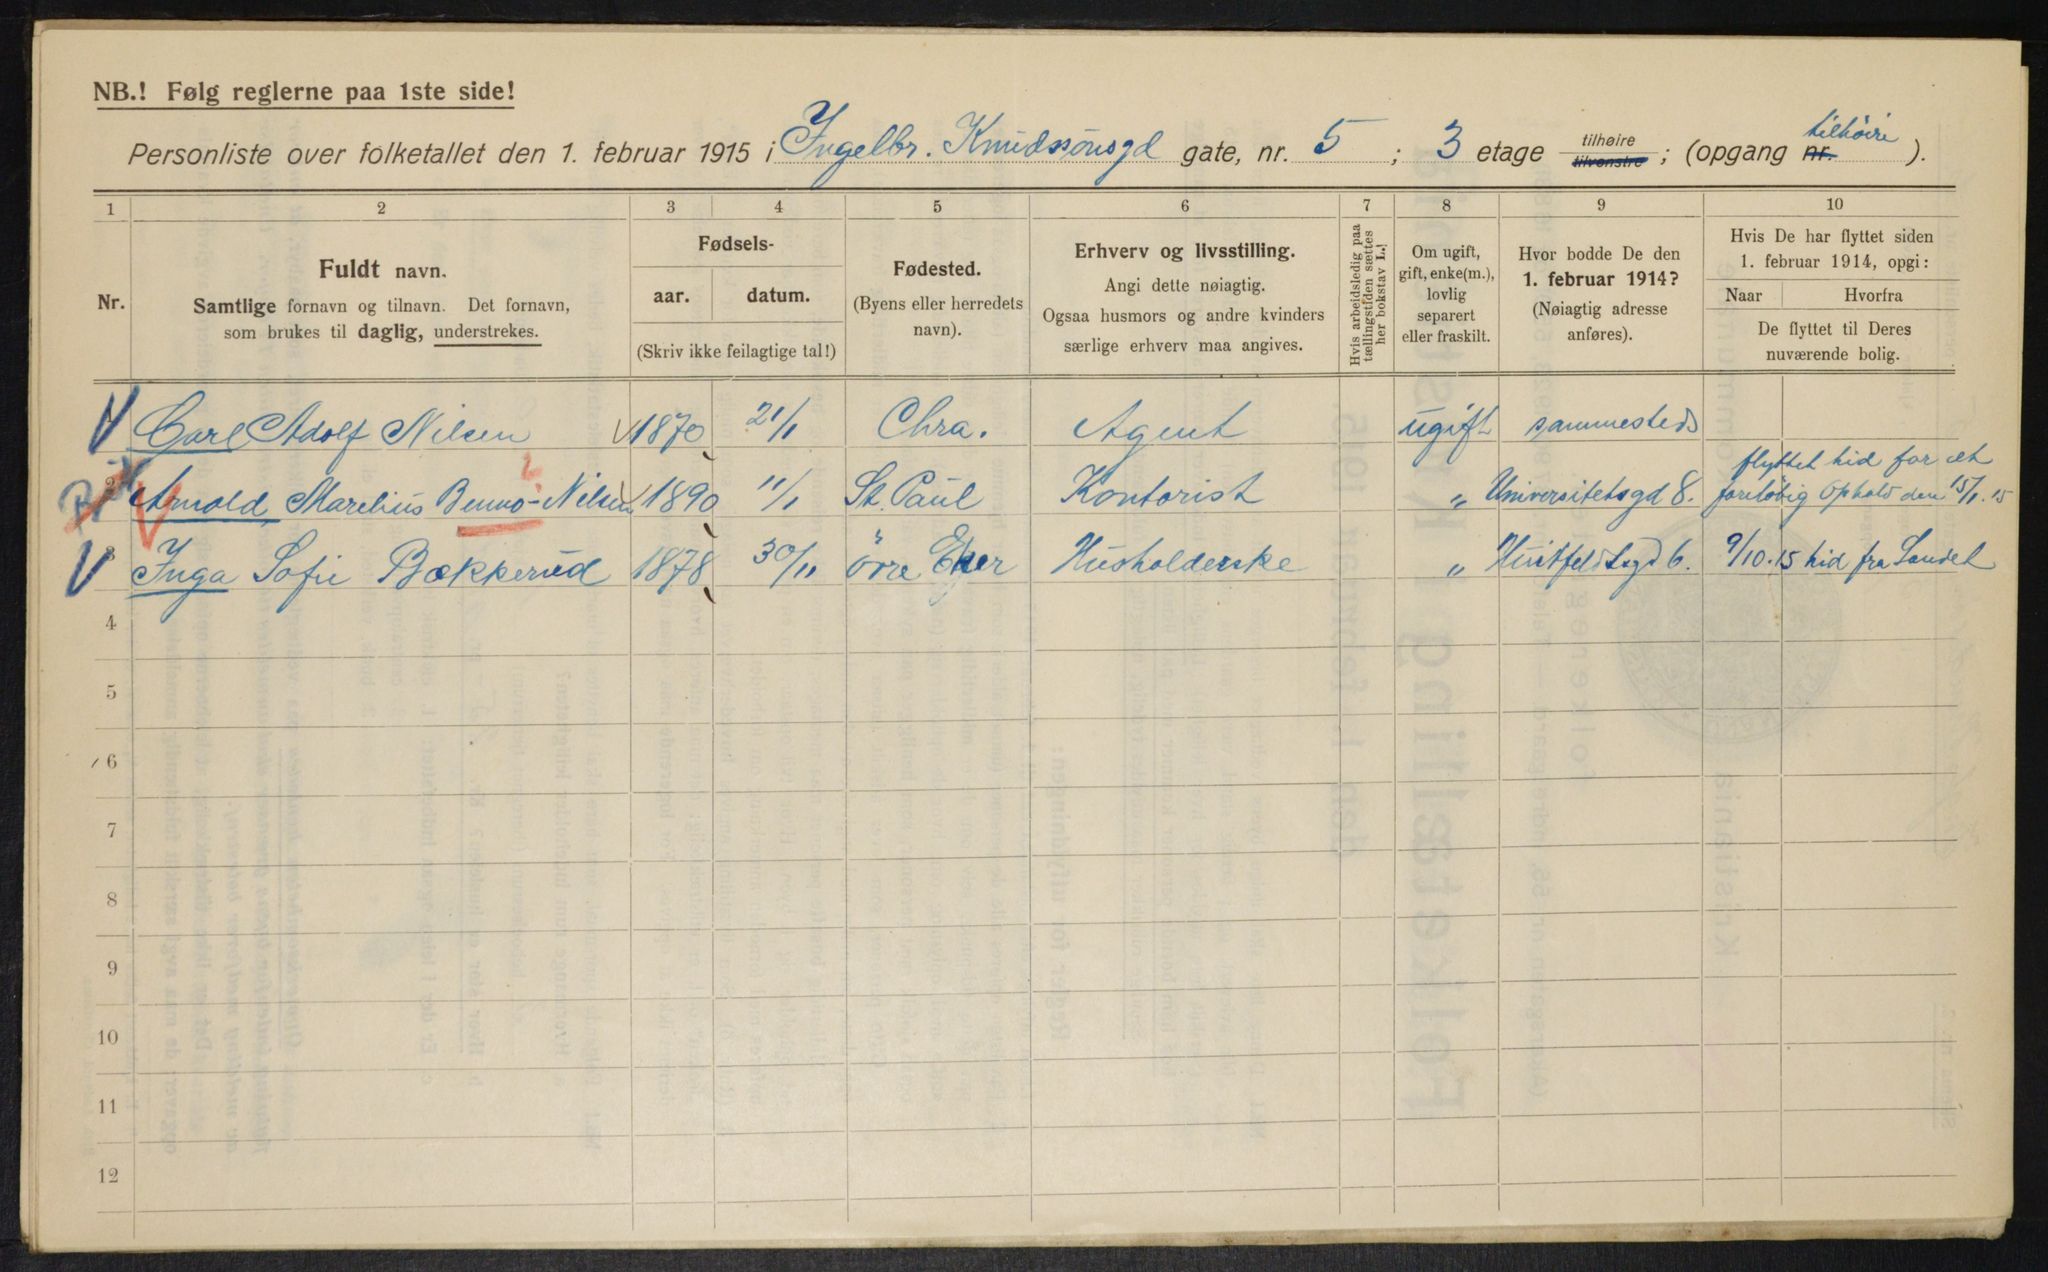 NB.! Følg reglerne paa 1ste side!
Personliste over folketallet den 1. februar 1915 i Ingelbr. Knudssønsgd gate, nr. 5 ; 3 etage tilhøire tilvenstre ; (opgang nr. tilhöire ).
1 2 3 4 5 6 7 8 9 10
Nr.
Fuldt navn.
Samtlige fornavn og tilnavn. Det fornavn,
som brukes til daglig, understrekes.
Fødsels-
aar. datum.
(Skriv ikke feilagtige tal!)
Fødested.
(Byens eller herredets
navn).
Erhverv og livsstilling.
Angi dette nøiagtig.
Ogsaa husmors og andre kvinders
særlige erhverv maa angives.
Hvis arbeidsledig paa
tællingstiden sættes
her bokstav L.!
Om ugift,
gift, enke(m.),
lovlig
separert
eller fraskilt.
Hvor bodde De den
1. februar 1914?
(Nøiagtig adresse
anføres).
Hvis De har flyttet siden
1. februar 1914, opgi:
Naar Hvorfra
De flyttet til Deres
nuværende bolig.
Carl Adolf Nilsen 1870 21/1 Chra. Agent ugift sammesteds
2 Arnold, Marelius Benno-Nilsen 1890 11/1 St. Paul Kontorist " Universitetsgd 8. flyttet hid for et
foreløbig ophold den 15/1. 15
3 Inga Sofie Bækkerud 1878 30/11 övre Eker Husholderske " Huitfeldtsgd 6. 9/10.15 hid fra Landet
4
5
6
7
8
9
10
11
12